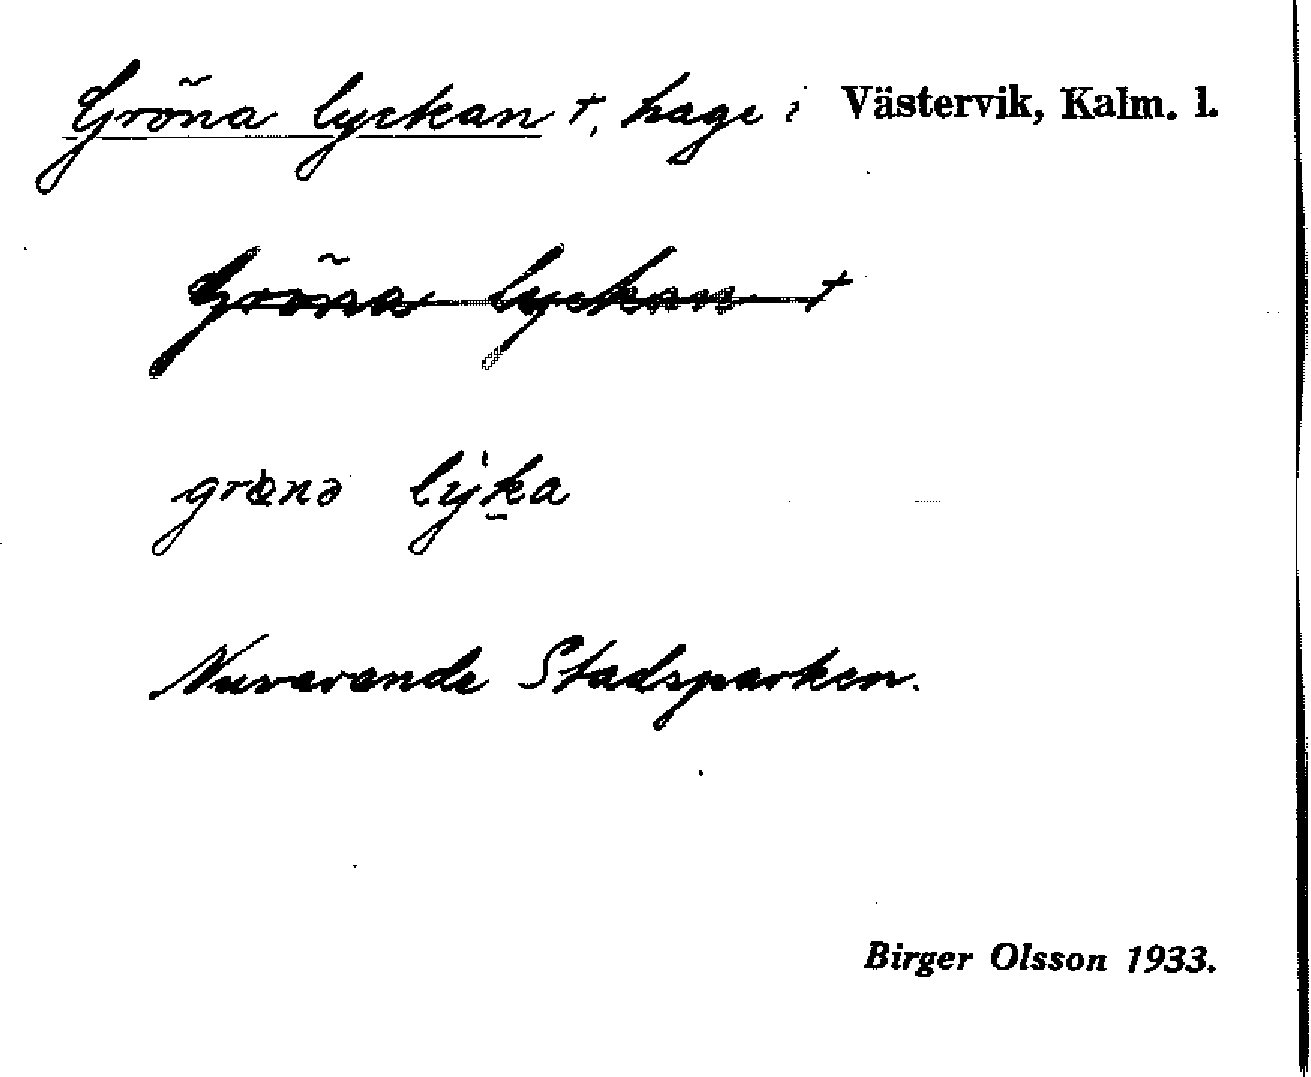 Gröna lyckan †, hage i Västervik, Kalm. l.
Gröna lyckan †
grönə lyka
Nuvarande Stadsparken.
Birger Olsson 1933.